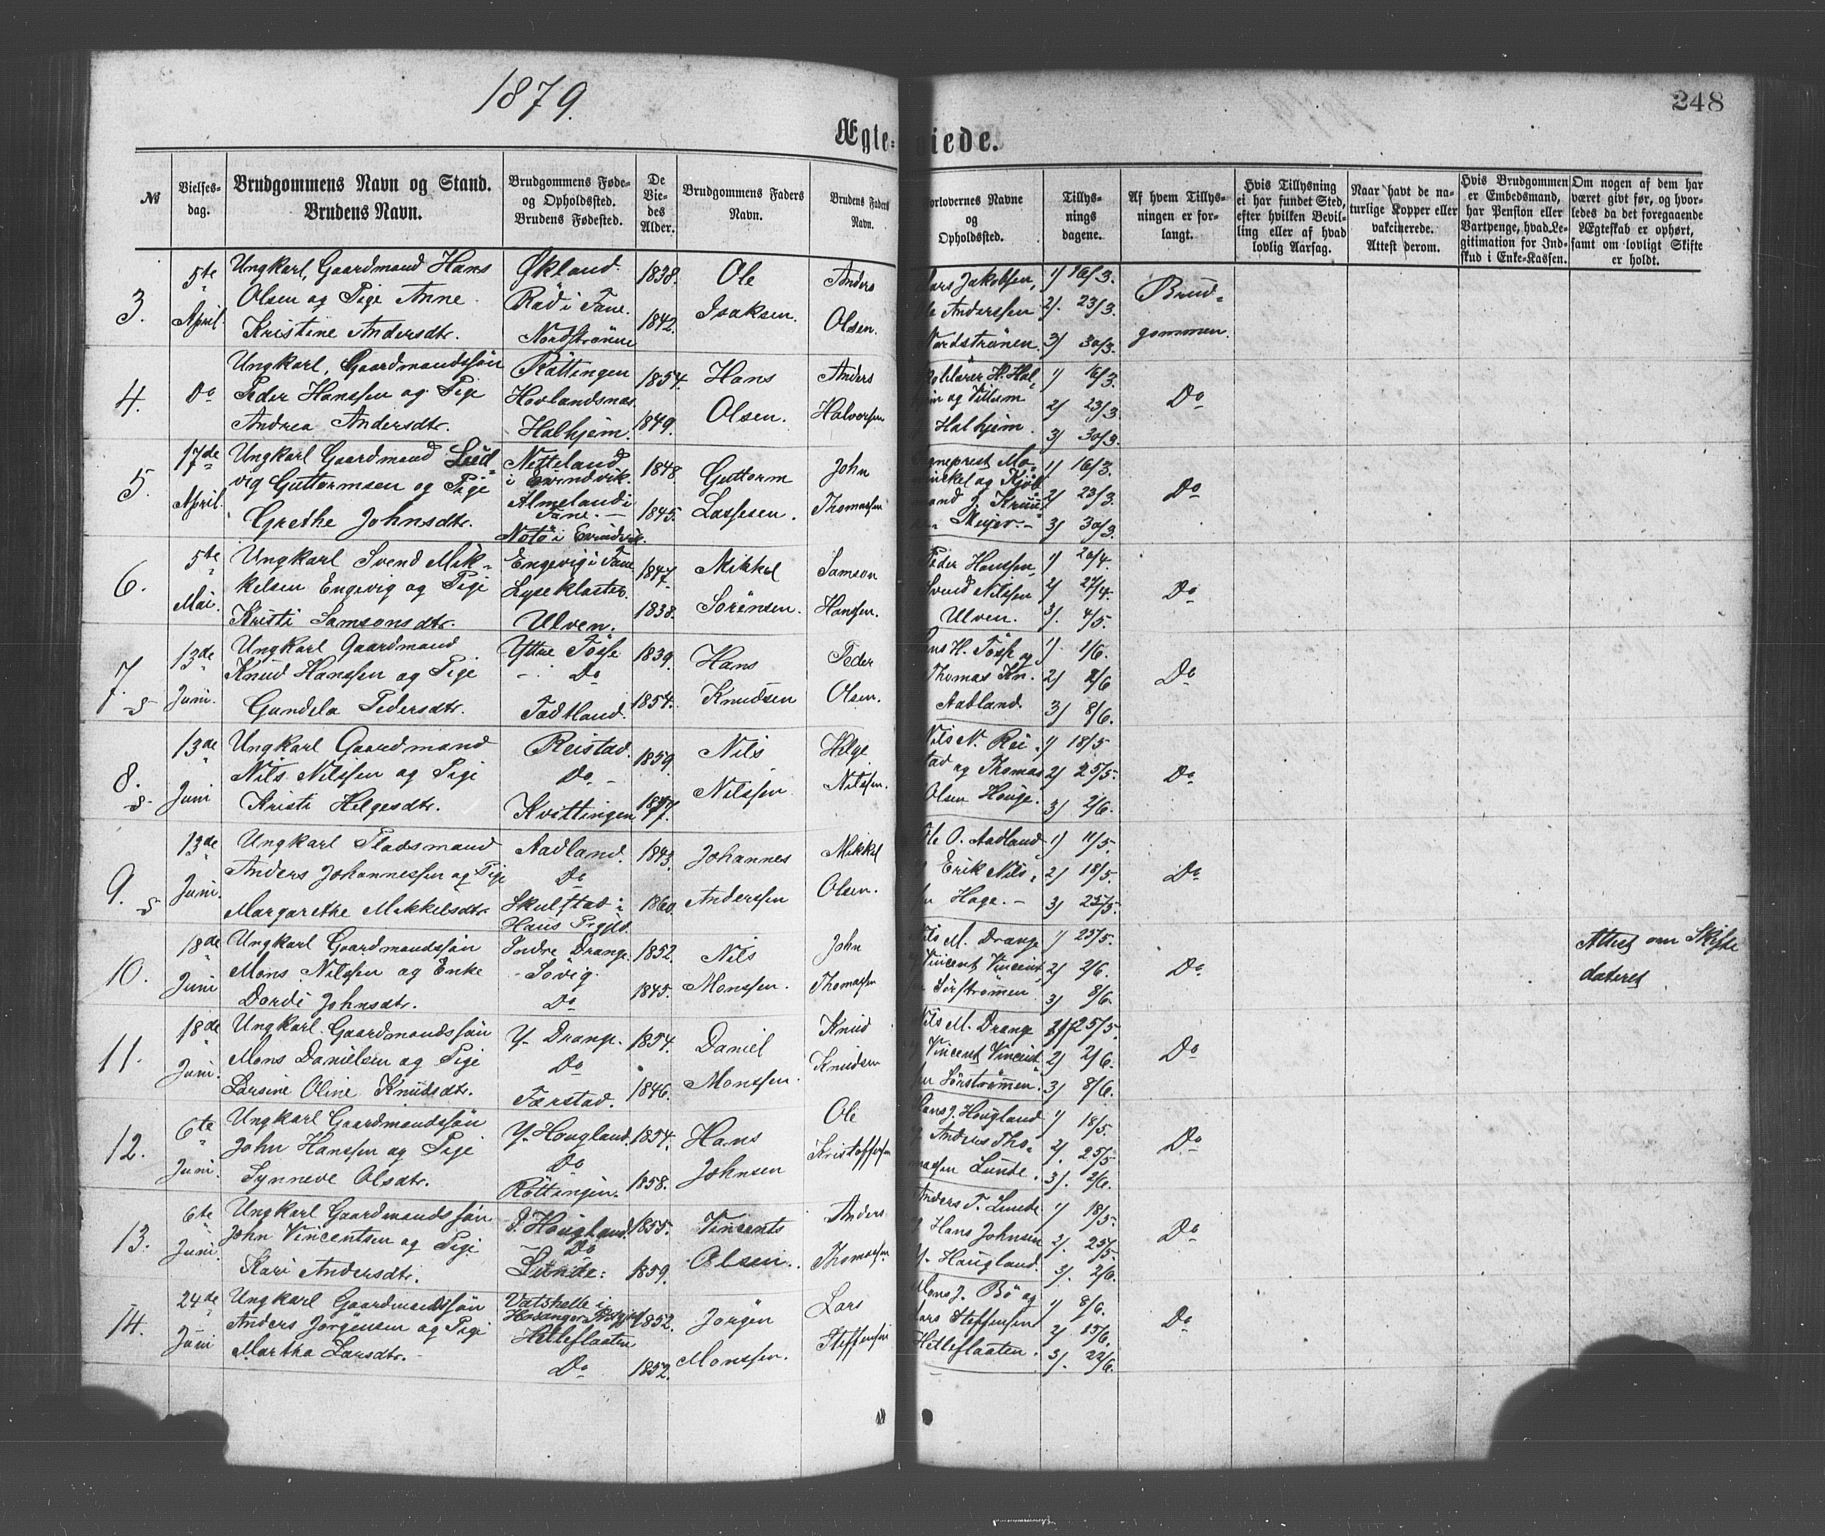 1879.
248
Ægte- viede.
№
Vielses-
dag.
Brudgommens Navn og Stand.
Brudens Navn.
Brudgommens Føde-
og Opholdssted.
Brudens Fødested.
De
Vie-
des
Alder.
Brudgommens Faders
Navn.
Brudens Faders
Navn.
orlovernes Navne
og
Opholdssted.
Tillys-
nings
dagene.
Af hvem Tillys-
ningen er for-
langt.
Hvis Tillysning
ei har fundet Sted,
efter hvilken Bevil-
ling eller af hvad
lovlig Aarsag.
Naar havt de na-
turlige Kopper eller
vakcinerede.
Attest derom.
Hvis Brudgommen
er Embedsmand,
har Pension eller
Vartpenge, hvad Le-
gitimation for Ind-
skud i Enke-Kassen.
Om nogen af dem har
været givt før, og hvor-
ledes da det foregaaende
Ægteskab er ophørt,
samt om lovligt Skifte
er holdt.
3. 5te April. Ungkarl, Gaardmand Hans Økland 1838. Ole Anders Lars Jakobsen, 1) 16/3. Brud-
Olsen og Pige Anne Rød i Fane. Isaksen. Olsen. Ole Anderssen 2). 23/3. gommen.
Kristine Andersdtr. Nordstrønen 1842. Nordstrønen. 3) 30/3.
4. Do Ungkarl, Gaardmandssøn Røttingen 1854. Hans Anders 1) 16/3. Do
Peder Hanssen og Pige Hovlandsnæs. Olsen. Halvorsen 2) 23/3.
Andrea Andersdtr. Halhjem. 1849. Halhjem. 3) 30/3.
5. 17de April. Ungkarl Gaardmand Lud- Netteland 1848. Guttorm John 1) 16/3. Do
vig Guttormsen og Pige i Evindvik. Lassesen. Thomassen 2) 23/3.
Grethe Johnsdtr. Almeland i Fane. 1845. Meyer. 3) 30/3.
Notø i Evindvik.
6. 5te Mai. Ungkarl Svend Mik- Engevig i Fane 1847. Mikkel Samson Peder Hanssen, 1) 20/4. Do
kelsen Engevig og Pige Lysekloster. Sørensen. Hanssen. Svend Nilssen 2) 27/4.
Kristi Samsonsdtr. Ulven. 1838. Ulven. 3). 4/5.
7. S 13de Juni. Ungkarl Gaardmand Yttre Tøsse 1839. Hans Peder H. Tøsse og 1). 1/6. Do
Knud Hanssen og Pige Do Knudsen Olsen. Thomas Kn. 2) 2/6
Gundela Pedersdtr. Tødtland. 1854. Aadland. 3) 8/6.
8. S. 13de Juni Ungkarl Gaardmand Reistad. 1859. Nils Helge Nils N. Rei- 1) 18/5 Do
Nils Nilssen og Pige Do Nilssen Nilssen. stad og Thomas 2) 25/5.
Kristi Helgesdtr. Kvittingen 1847. Olsen Houge. 3) 2/6.
9. S 13de Juni. Ungkarl Pladsmand Aadland. 1843. Johannes Mikkel Ole O. Aadland 1) 11/5. Do
Anders Johannessen og Pige Do Anderssen Olsen. Erik Nils- 2) 18/5.
Margarethe Mikkelsdtr. Skulstad i 1860. Hage. 3) 25/5.
Haus Prgjld.
10. 18de Juni Ungkarl Gaardmandssøn Indre Drange 1852. Nils John Nils M. Drange 1) 25/5. Do Attest om Skifte
Mons Nilssen og Enke Søvig. Monssen. Thomassen Vincent Vincent 2) 2/6. dateret
Dordi Johnsdtr. Do 1845. Sørstrømen 3) 8/6.
11. 18de Juni. Ungkarl Gaardmandssøn Y. Drange. 1854. Daniel Knud Nils M. Drange 25/5. Do
Mons Danielsen og Pige Do Monssen. Knudsen Vincent Vincent 2) 2/6.
Larsine Oline Knudsdtr. Færstad. 1846. Sørstrømen. 3) 8/6.
12. 6te Juni. Ungkarl Gaardmandssøn Y. Hougland. 1854. Hans Ole Hans J. Hougland 1) 18/5. Do
John Hanssen og Pige Do Johnsen Kristoffersen Anders Tho- 2). 25/5.
Synneve Olsdtr. Røttingen. 1858. massen Lunde. 3). 2/6.
13. 6te Juni. Ungkarl Gaardmandssøn Hougland. 1855. Vincents Anders Anders T. Lunde 1) 18/5. Do
John Vincentsen og Pige Do Olsen. Thomassen Hans Johnsen 2). 25/5.
Kari Andersdtr. Lunde. 1859. Y. Haugland. 3). 2/6.
14. 24de Juni Ungkarl Gaardmandssøn Vatshelle i 1852. Jørgen Lars Mons J. Bø og 1) 8/6. Do
Anders Jørgensen og Pige Hosanger Prstgjld Monssen. Steffensen Lars Steffensen 2) 15/6.
Martha Larsdtr. Helleflaaten Helleflaaten. 3). 22/6.
Do 1852.